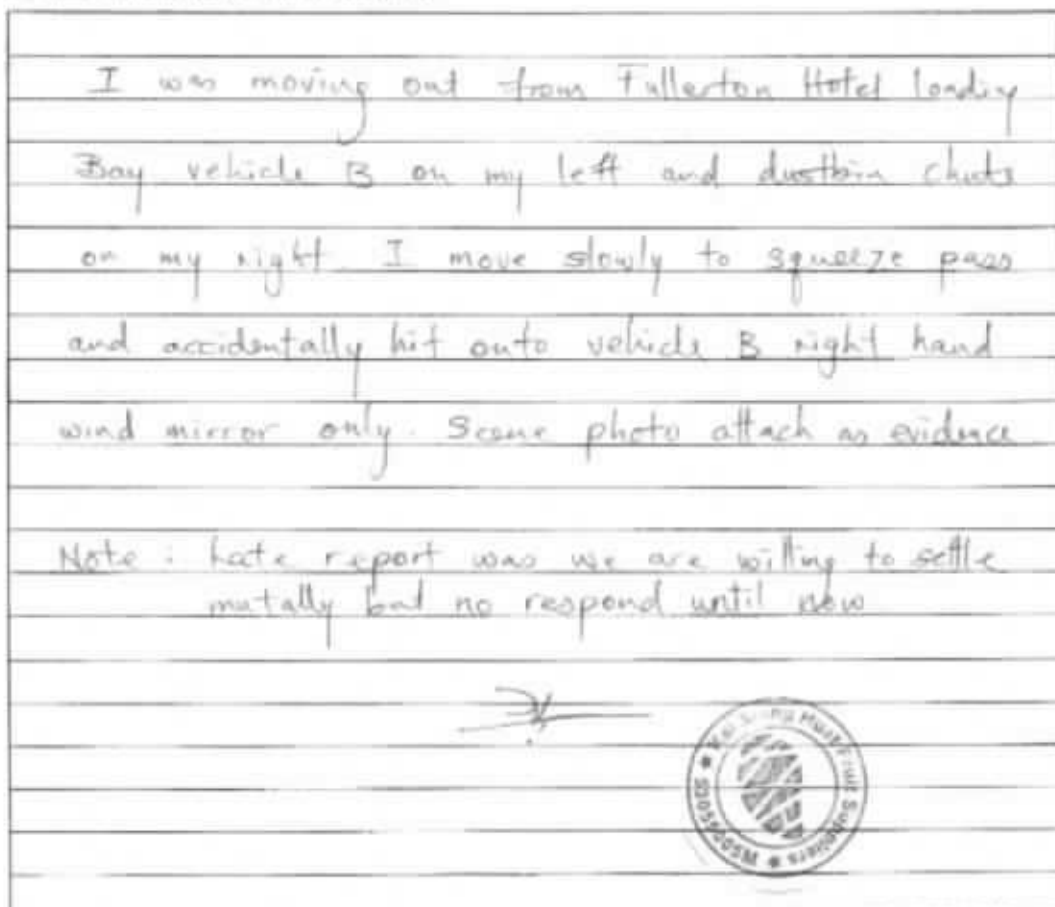 I was moving out from Fullerton Hotel loading
Bay vehicle B on my left and dustbin chute
on my right. I move slowly to squeeze pass
and accidentally hit onto vehicle B right hand
wind mirror only. Scene photo attach as evidence
Note : Late report was we are willing to settle
mutally but no respond until now
Fruit Suppliers